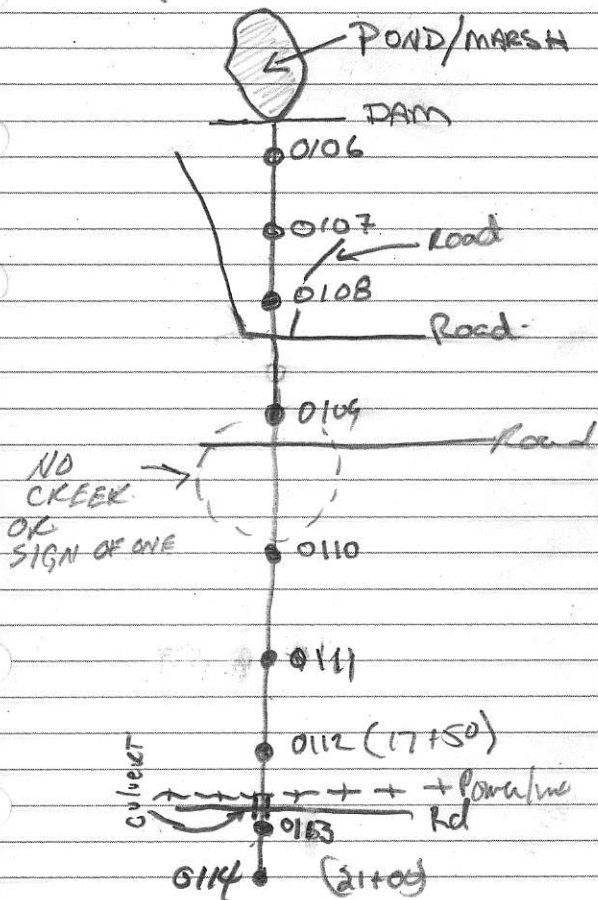 POND/MARSH
DAM
0106
0107
Road
0108
Road
0109
Road
NO
CREEK
OR
SIGN OF ONE
0110
0111
0112 (17+50)
CULVERT
Powerline
Rd
0113
0114 (21+00)